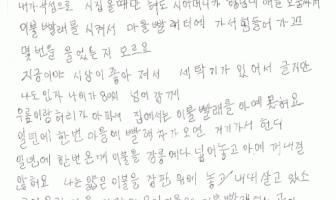 내가 작심으로 시집 올때만 해도 시어머니가
이불 빨래를 시켜서 마을 빨래터에 가서 힘들어 가꼬
몇번을 울었는지 모르요
지금이야 세상이 좋아져서 세탁기가 있어서 글지만
나도 인자 나이가 80이 넘어 감께
무릎이랑 허리가 아파서 집에서는 이불 빨래를 아예 못허요
일년에 한번 마을에 빨래차가 오면 거기가서 헌디
일년에 한번 온께 이불을 장롱에다 넣어놓고 아예 꺼내질
않허요 나는 얇은 이불을 장판 위에 놓고 내내 살고 있소